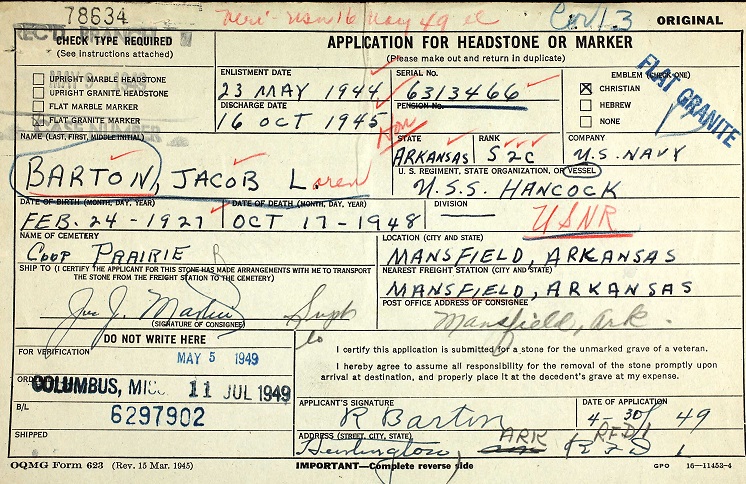 78634
Veri-usn 16 May 49 el
Cont 3
ORIGINAL
REC'D BRANCH
CHECK TYPE REQUIRED
(See instructions attached)
MAY 9 1949
UPRIGHT MARBLE HEADSTONE
UPRIGHT GRANITE HEADSTONE
FLAT MARBLE MARKER
FLAT GRANITE MARKER
CASE NUMBER
APPLICATION FOR HEADSTONE OR MARKER
(Please make out and return in duplicate)
ENLISTMENT DATE
23 MAY 1944
SERIAL No.
6313466
EMBLEM (CHECK ONE)
X CHRISTIAN
HEBREW
NONE
FLAT GRANITE
DISCHARGE DATE
16 OCT 1945
PENSION No.
Hon
NAME (LAST, FIRST, MIDDLE INITIAL)
BARTON, JACOB L.oren
STATE
ARKANSAS
RANK
S2C
COMPANY
U.S. NAVY
U. S. REGIMENT, STATE ORGANIZATION, OR VESSEL
U.S.S. HANCOCK
DATE OF BIRTH (MONTH, DAY, YEAR)
FEB. 24-1927
DATE OF DEATH (MONTH, DAY, YEAR)
OCT 17-1948
DIVISION
—
USNR
NAME OF CEMETERY
COOP PRAIRIE
LOCATION (CITY AND STATE)
MANSFIELD, ARKANSAS
SHIP TO (I CERTIFY THE APPLICANT FOR THIS STONE HAS MADE ARRANGEMENTS WITH ME TO TRANSPORT
THE STONE FROM THE FREIGHT STATION TO THE CEMETERY)
NEAREST FREIGHT STATION (CITY AND STATE)
MANSFIELD, ARKANSAS
(SIGNATURE OF CONSIGNEE)
POST OFFICE ADDRESS OF CONSIGNEE
Mansfield, Ark.
DO NOT WRITE HERE
FOR VERIFICATION
MAY 5 1949
COLUMBUS, MISS. 11 JUL 1949
B/L
6297902
SHIPPED
I certify this application is submitted for a stone for the unmarked grave of a veteran.
I hereby agree to assume all responsibility for the removal of the stone promptly upon
arrival at destination, and properly place it at the decedent's grave at my expense.
APPLICANT'S SIGNATURE
R Barton
DATE OF APPLICATION
4-30/49
ADDRESS (STREET, CITY, STATE)
Huntington, ARK
RFD 1
OQMG Form 623 (Rev. 15 Mar. 1945)
IMPORTANT—Complete reverse side
GPO 16-11453-4